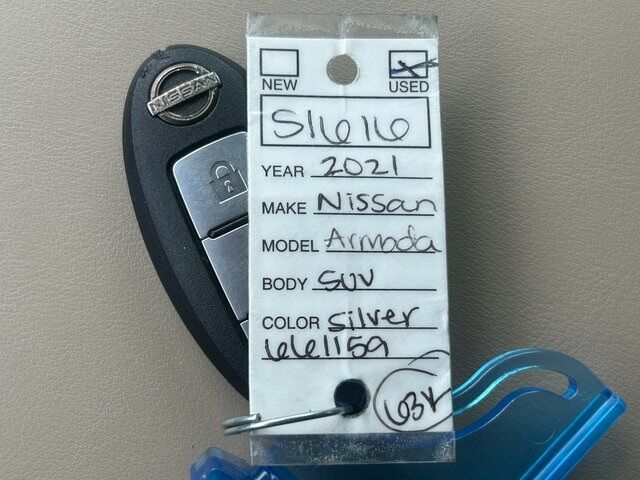 NISSAN
NEW USED
S1616
YEAR 2021
MAKE Nissan
MODEL Armada
BODY SUV
COLOR Silver
661159